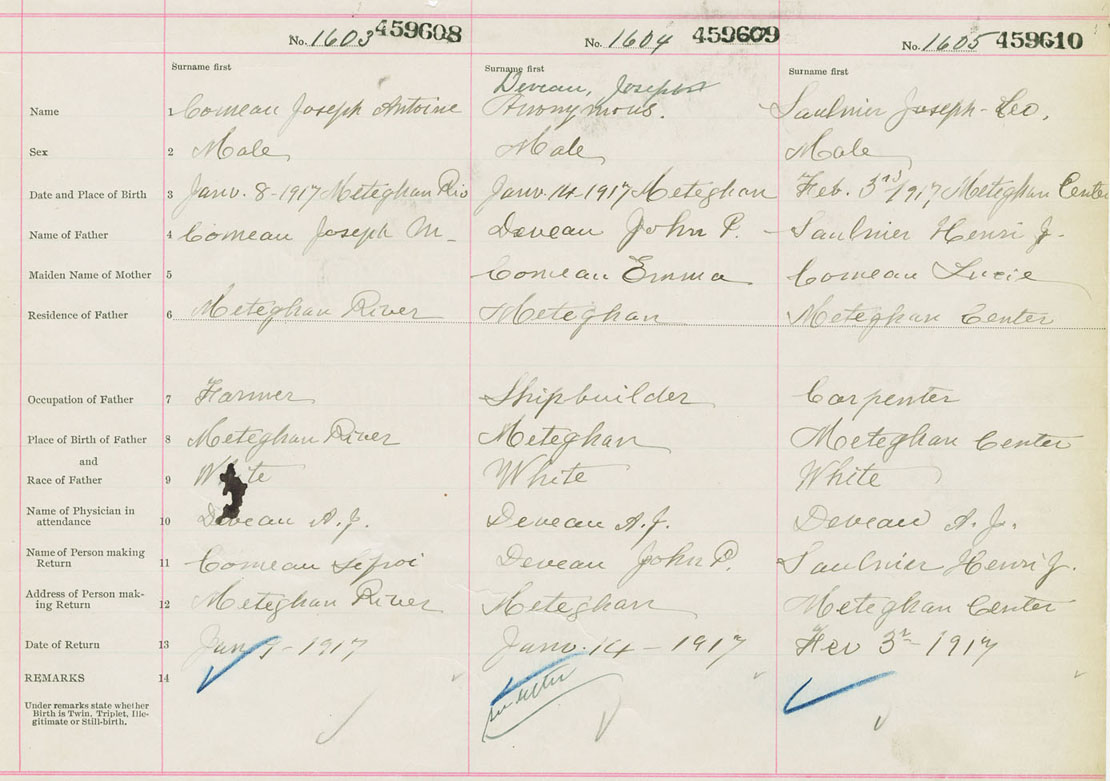 No. 1603 459608 No. 1604 459609 No. 1605 459610
Surname first Surname first Surname first
Deveau, Joseph
Name 1 Comeau Joseph Antoine Anonymous. Saulnier Joseph-Leo,
Sex 2 Male Male Male
Date and Place of Birth 3 Janv. 8-1917 Meteghan Riv Janv. 14-1917 Meteghan Feb. 3rd 1917, Meteghan Center
Name of Father 4 Comeau Joseph M- Deveau John P. - Saulnier Henri J.
Maiden Name of Mother 5 Comeau Emma Comeau Lucie
Residence of Father 6 Meteghan River Meteghan Meteghan Center
Occupation of Father 7 Farmer Shipbuilder Carpenter
Place of Birth of Father 8 Meteghan River Meteghan Meteghan Center
and
Race of Father 9 White White White
Name of Physician in
attendance 10 Deveau A.J. Deveau A.J. Deveau A.J.
Name of Person making
Return 11 Comeau Deveau John P. Saulnier Henri J.
Address of Person mak-
ing Return 12 Meteghan River Meteghan Meteghan Center
Date of Return 13 Jan 9-1917 Janv. 14-1917 Fev 3r-1917
REMARKS 14
Under remarks state whether
Birth is Twin, Triplet, Ille-
gitimate or Still-birth.